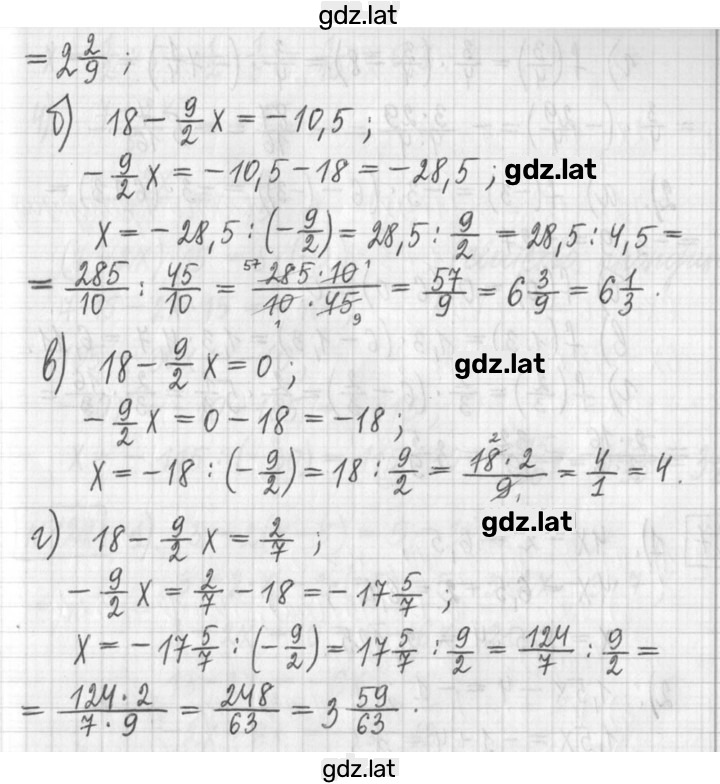 gdz.lat
= 2 2/9 ;
б) 18 − 9/2 x = −10,5 ;
− 9/2 x = −10,5 − 18 = −28,5 ; gdz.lat
x = −28,5 : (− 9/2) = 28,5 : 9/2 = 28,5 : 4,5 =
= 285/10 : 45/10 = 57 285·10 1 / 10·45 1 9 = 57/9 = 6 3/9 = 6 1/3 .
в) 18 − 9/2 x = 0 ; gdz.lat
− 9/2 x = 0 − 18 = −18 ;
x = −18 : (− 9/2) = 18 : 9/2 = 2 18·2 / 9 1 = 4/1 = 4.
gdz.lat
г) 18 − 9/2 x = 2/7 ;
− 9/2 x = 2/7 − 18 = −17 5/7 ;
x = −17 5/7 : (− 9/2) = 17 5/7 : 9/2 = 124/7 : 9/2 =
= 124·2 / 7·9 = 248/63 = 3 59/63 .
gdz.lat